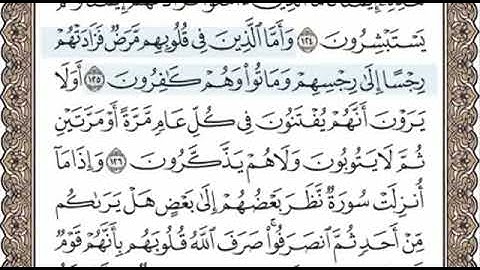 يَسْتَبْشِرُونَ ١٢٤ وَأَمَّا الَّذِينَ فِي قُلُوبِهِم مَّرَضٌ فَزَادَتْهُمْ
رِجْسًا إِلَىٰ رِجْسِهِمْ وَمَاتُوا۟ وَهُمْ كَٰفِرُونَ ١٢٥ أَوَلَا
يَرَوْنَ أَنَّهُمْ يُفْتَنُونَ فِي كُلِّ عَامٍ مَّرَّةً أَوْ مَرَّتَيْنِ
ثُمَّ لَا يَتُوبُونَ وَلَا هُمْ يَذَّكَّرُونَ ١٢٦ وَإِذَا مَآ
أُنزِلَتْ سُورَةٌ نَّظَرَ بَعْضُهُمْ إِلَىٰ بَعْضٍ هَلْ يَرَىٰكُم
مِّنْ أَحَدٍ ثُمَّ ٱنصَرَفُوا۟ ۚ صَرَفَ ٱللَّهُ قُلُوبَهُم بِأَنَّهُمْ قَوْمٌ